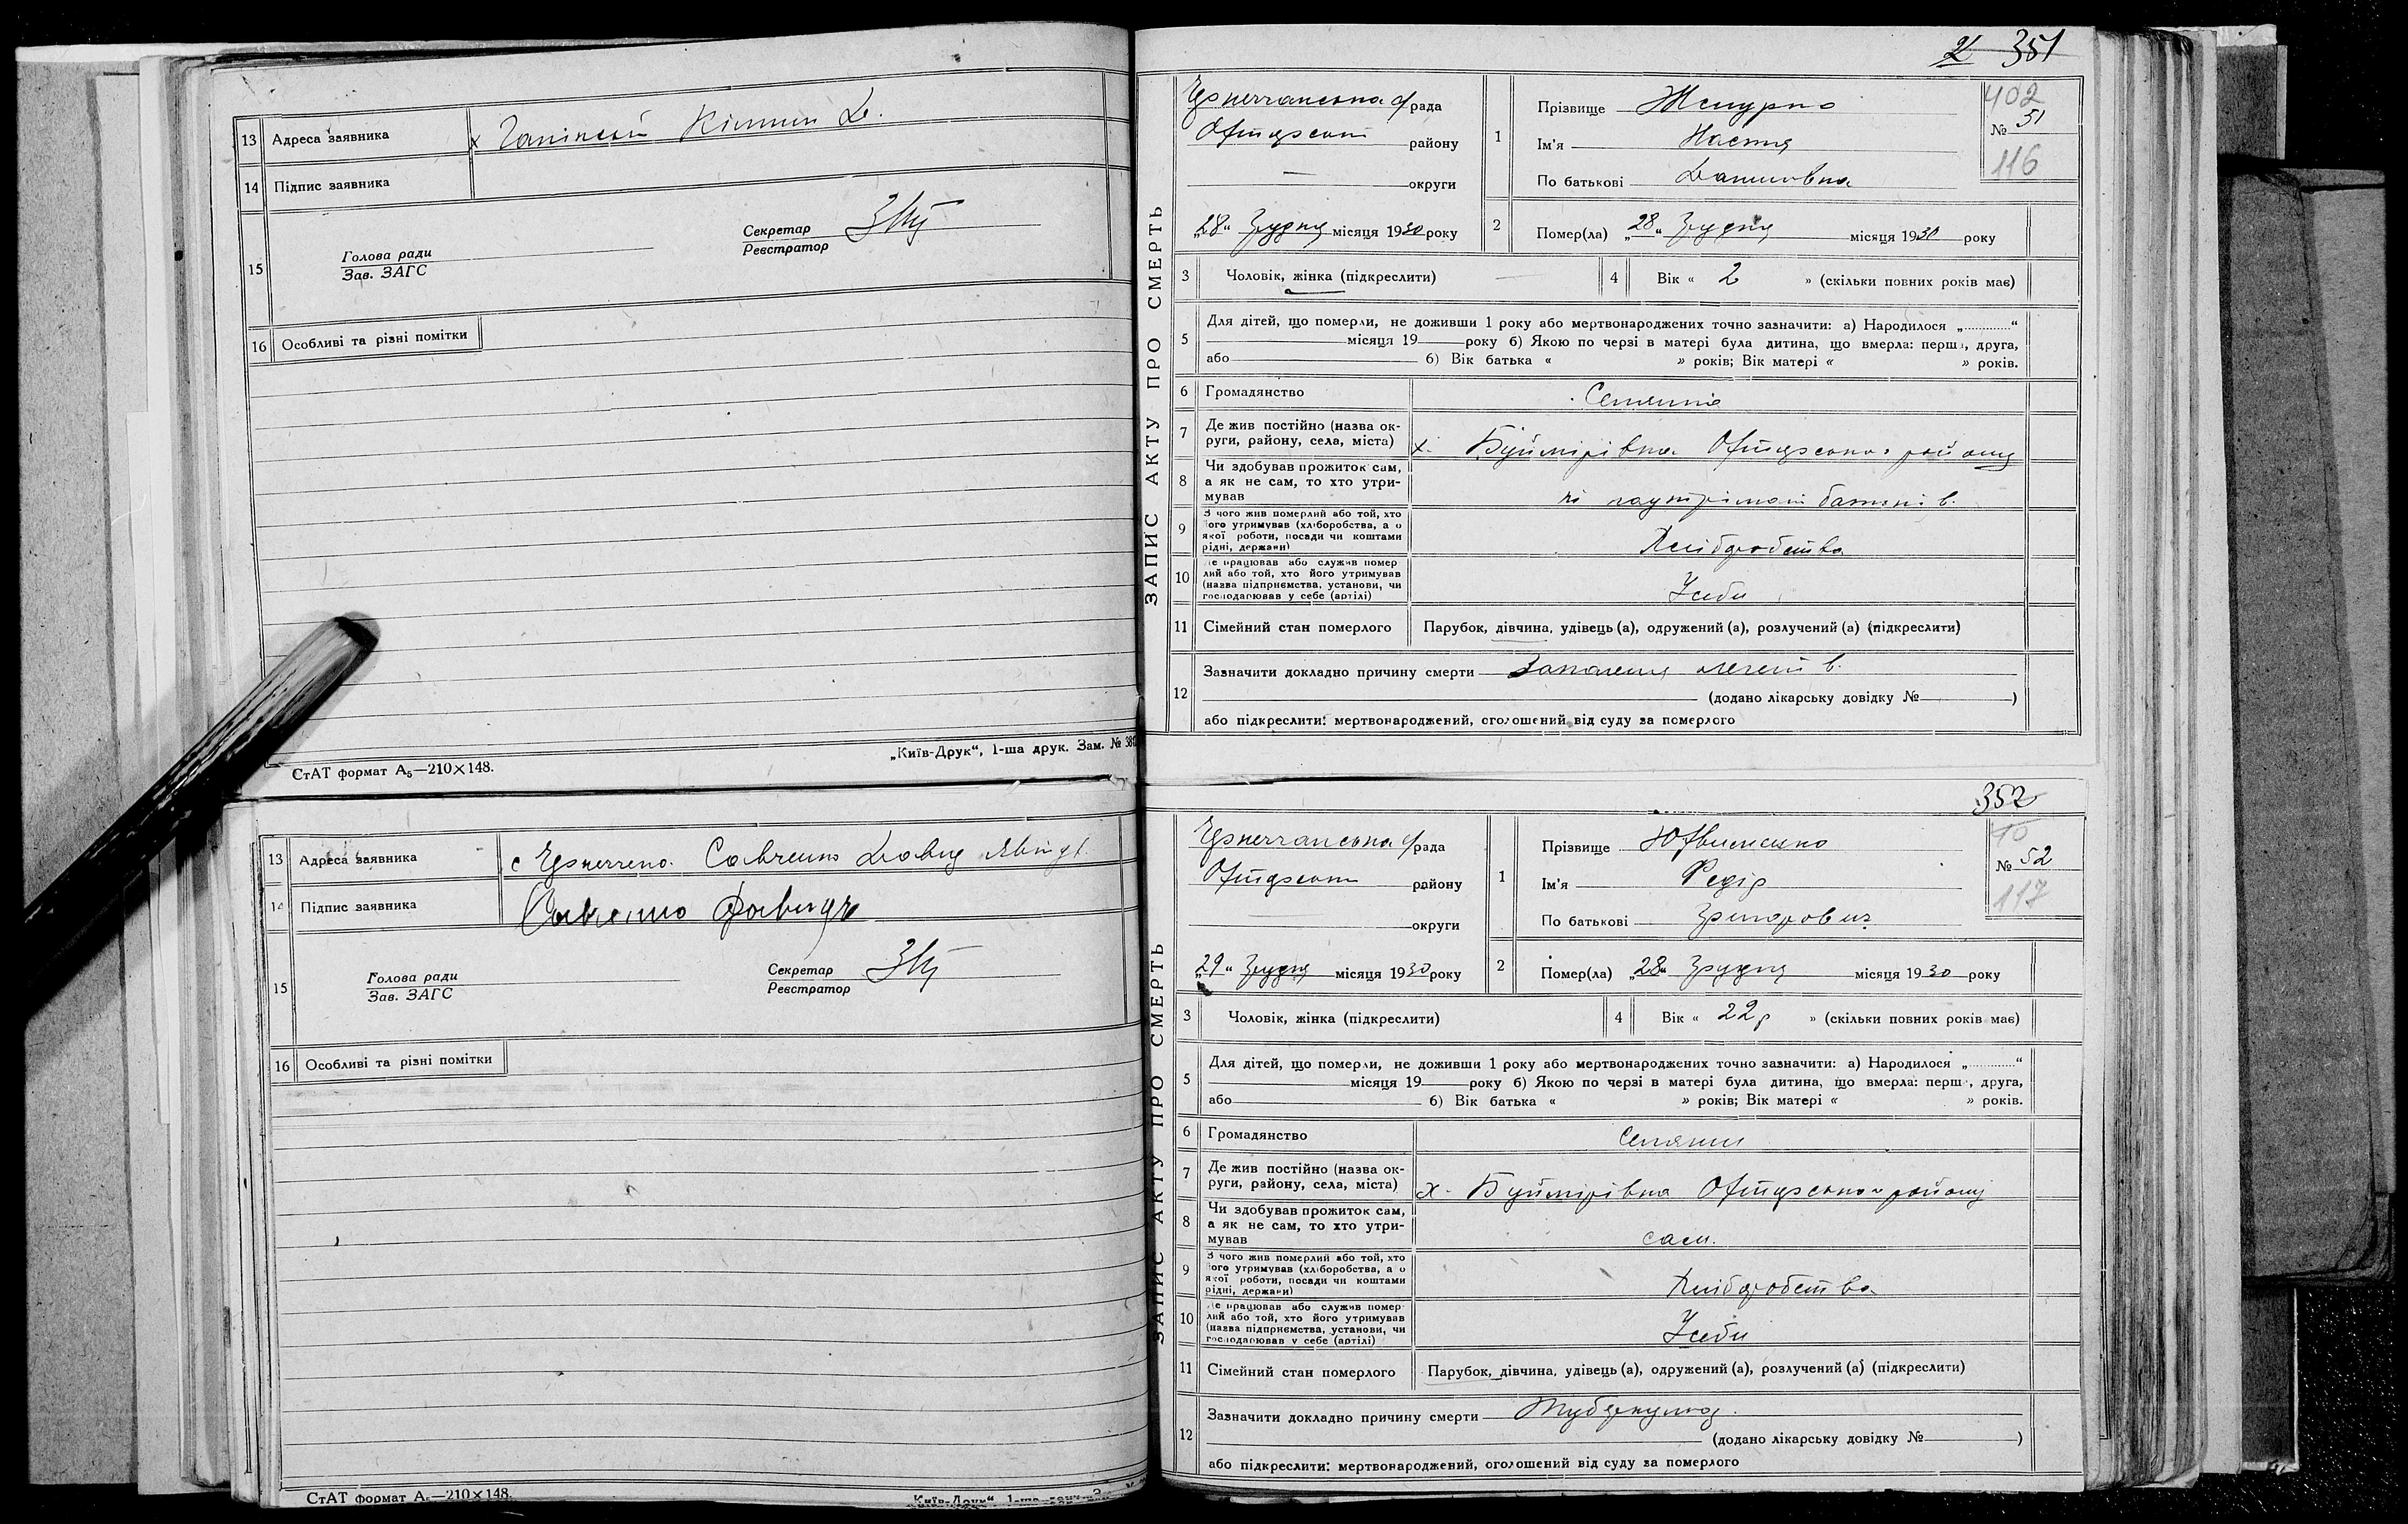 13 Адреса заявника х
14 Підпис заявника
15 Голова ради
Зав. ЗАГС
Секретар
Реєстратор
16 Особливі та різні помітки
„Київ-Друк“, 1-ша друк. Зам. №
СтАТ формат А₅—210×148.
13 Адреса заявника с Давид
14 Підпис заявника
15 Голова ради
Зав. ЗАГС
Секретар
Реєстратор
16 Особливі та різні помітки
СтАТ формат А₅—210×148.
351
ЗАПИС АКТУ ПРО СМЕРТЬ
рада
району
округи
„28“ Грудня місяця 1930 року
1 Прізвище
Ім'я Настя
По батькові Даниловна
402
№ 51
116
2 Помер(ла) „28“ Грудня місяця 1930 року
3 Чоловік, жінка (підкреслити)
4 Вік « 2 » (скільки повних років має)
5 Для дітей, що померли, не доживши 1 року або мертвонароджених точно зазначити: а) Народилося „ “
місяця 19 року б) Якою по черзі в матері була дитина, що вмерла: перша, друга,
або б) Вік батька « » років; Вік матері « » років.
6 Громадянство Селянка
7 Де жив постійно (назва ок-
руги, району, села, міста) х. Буймірівка району
8 Чи здобував прожиток сам,
а як не сам, то хто утри-
мував
9 З чого жив померлий або той, хто
його утримував (хліборобства, а о
якої роботи, посади чи коштами
рідні, держави) Хліборобства
10 Де працював або служив помер
лий або той, хто його утримував
(назва підприємства, установи, чи
господарював у себе (артілі) У себе
11 Сімейний стан померлого Парубок, дівчина, удівець (а), одружений (а), розлучений (а) (підкреслити)
12 Зазначити докладно причину смерти Запалення легенів.
(додано лікарську довідку № )
або підкреслити: мертвонароджений, оголошений від суду за померлого
352
ЗАПИС АКТУ ПРО СМЕРТЬ
рада
району
округи
„29“ Грудня місяця 1930 року
1 Прізвище
Ім'я Федір
По батькові Григорович
№ 52
117
2 Помер(ла) „28“ Грудня місяця 1930 року
3 Чоловік, жінка (підкреслити)
4 Вік « 22 р » (скільки повних років має)
5 Для дітей, що померли, не доживши 1 року або мертвонароджених точно зазначити: а) Народилося „ “
місяця 19 року б) Якою по черзі в матері була дитина, що вмерла: перша, друга,
або б) Вік батька « » років; Вік матері « » років.
6 Громадянство Селянин
7 Де жив постійно (назва ок-
руги, району, села, міста) х. Буймірівка району
8 Чи здобував прожиток сам,
а як не сам, то хто утри-
мував сам.
9 З чого жив померлий або той, хто
його утримував (хліборобства, а о
якої роботи, посади чи коштами
рідні, держави) Хліборобства
10 Де працював або служив помер
лий або той, хто його утримував
(назва підприємства, установи, чи
господарював у себе (артілі) У себе
11 Сімейний стан померлого Парубок, дівчина, удівець (а), одружений (а), розлучений (а) (підкреслити)
12 Зазначити докладно причину смерти Туберкульоз.
(додано лікарську довідку № )
або підкреслити: мертвонароджений, оголошений від суду за померлого